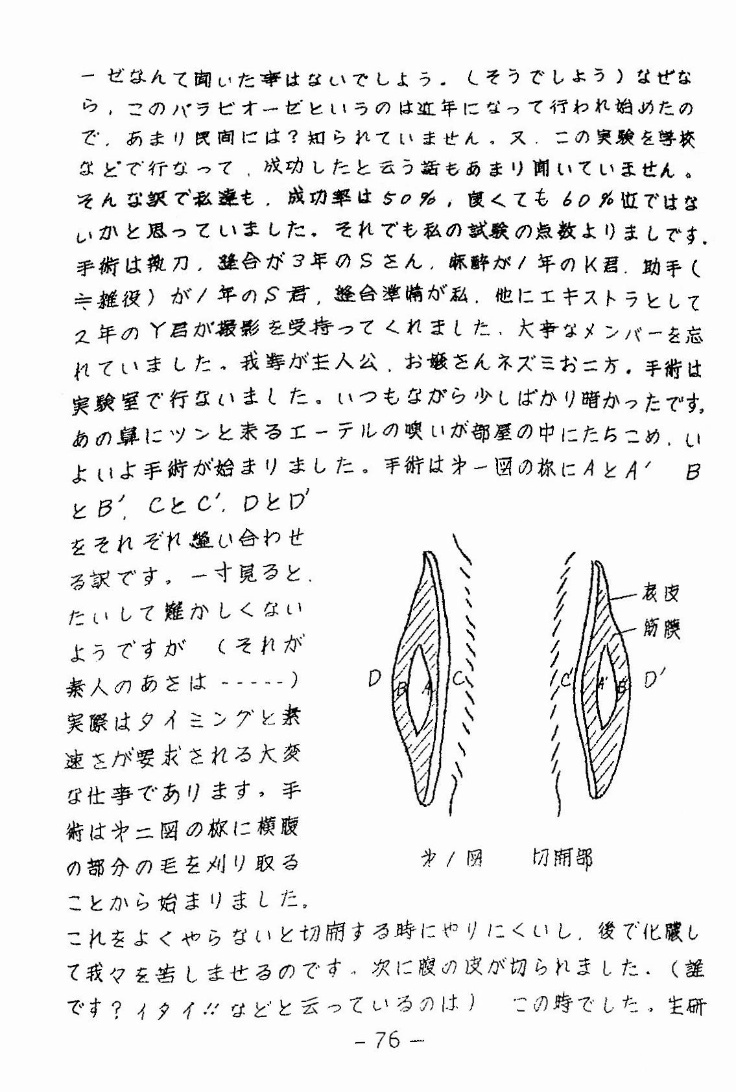 ーゼなんて聞いた事はないでしよう。(そうでしよう)なぜな
ら,このパラビオーゼというのは近年になって行われ始めたの
で,あまり民間には?知られていません。又,この実験を学校
などで行なって,成功したと云う話もあまり聞いていません。
そんな訳で私達も,成功率は50%,良くても60%位ではな
いかと思っていました。それでも私の試験の点数よりましです。
手術は執刀,縫合が3年のSさん,麻酔が1年のK君,助手(
≒雑役)が1年のS君,縫合準備が私,他にエキストラとして
2年のY君が撮影を受持ってくれました、大事なメンバーを忘
れていました。我等が主人公,お嬢さんネズミお二方。手術は
実験室で行ないました。いつもながら少しばかり暗かったです。
あの鼻にツンと来るエーテルの嗅いが部屋の中にたちこめ,い
よいよ手術が始まりました。手術は才一図の様にAとA′ B
とB′, CとC′, DとD′
をそれぞれ縫い合わせ
る訳です。一寸見ると,
たいして難かしくない
ようですが (それが
素人のあさは-----)
実際はタイミングと素
速さが要求される大変
な仕事であります。手
術は才二図の様に横腹
の部分の毛を刈り取る
ことから始まりました。
表皮
筋膜
D B A C C′ A′ B′ D′
才1図 切開部
これをよくやらないと切開する時にやりにくいし,後で化膿し
て我々を苦しませるのです。次に腹の皮が切られました。(誰
です?イタイ!!などと云っているのは) この時でした。生研
-76-